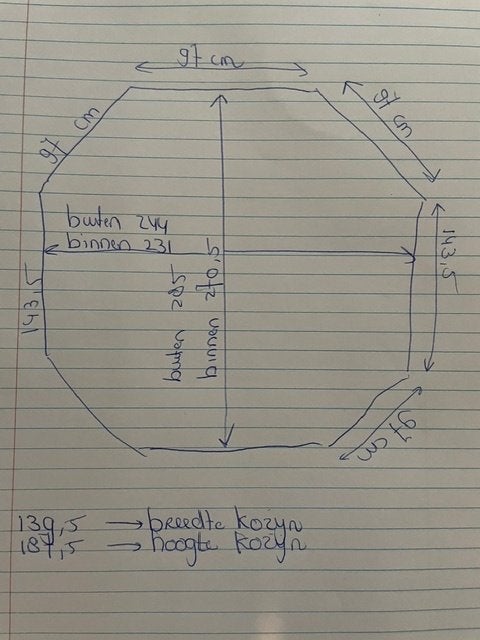 97 cm
97 cm
97 cm
buten 244
binnen 231
143,5
143,5
buten 285
binnen 270,5
97 cm
139,5 → breedte kozyn
187,5 → hoogte kozyn